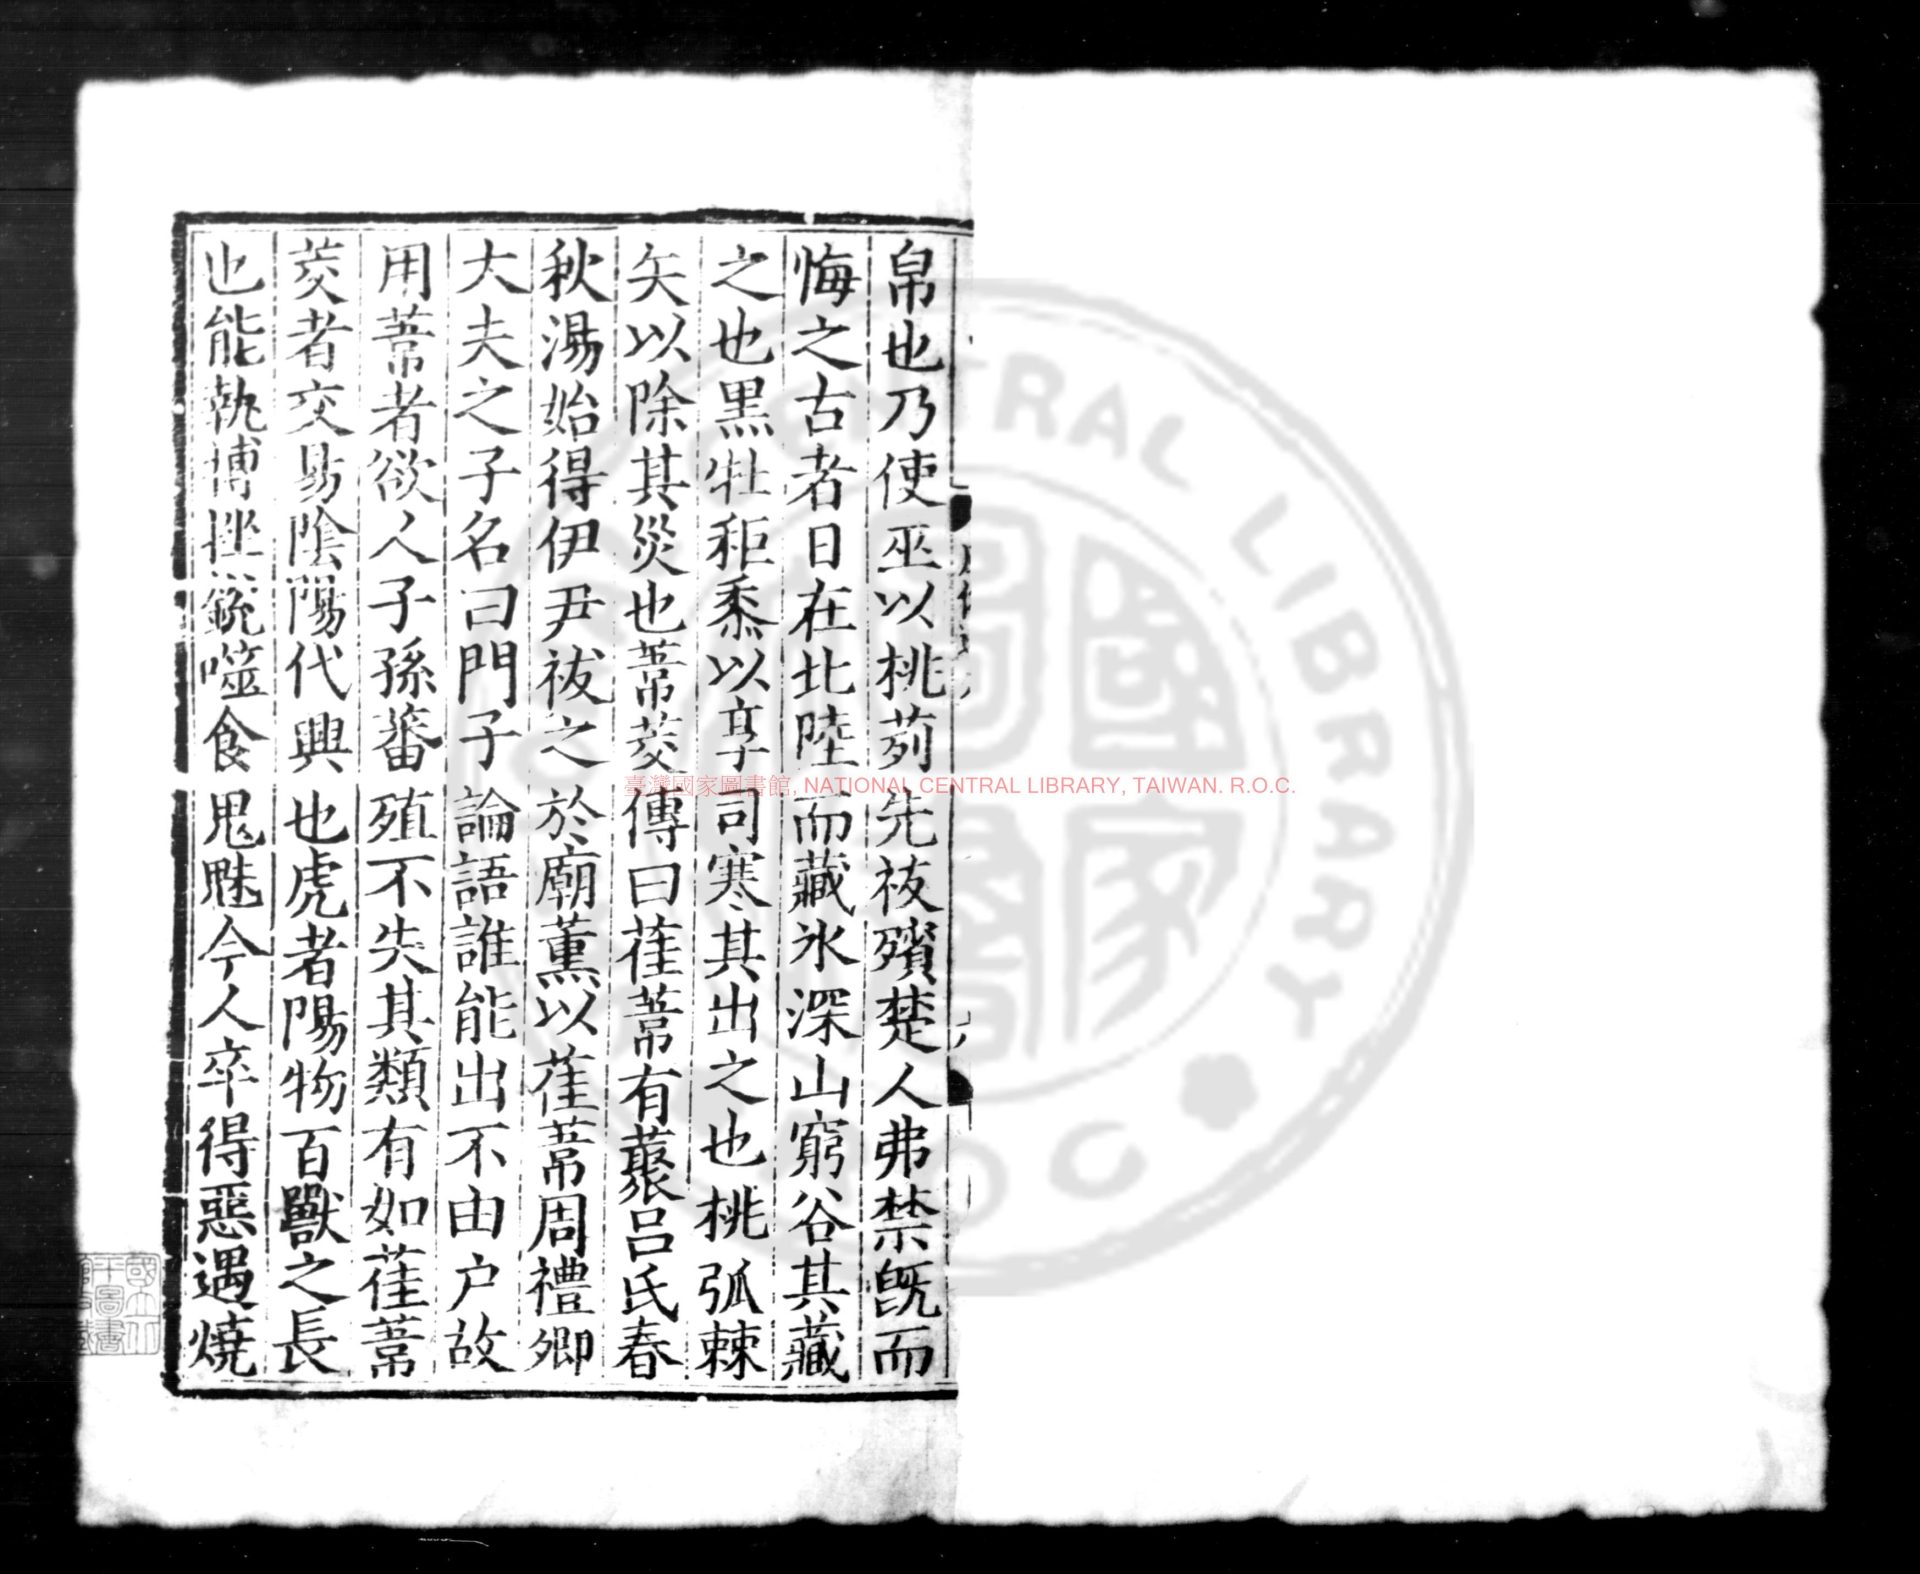 帛也乃使巫以桃茢先祓殯楚人弗禁旣而
悔之古者日在北陸而藏氷深山窮谷其藏
之也黒牡秬黍以享司寒其出之也桃弧棘
矢以除其災也葦茭傳曰萑葦有藂吕氏春
秋湯始得伊尹祓之於廟薰以萑葦周禮卿
大夫之子名曰門子論語誰能出不由户故
用葦者欲人子孫蕃殖不失其類有如萑葦
茭者交易隂陽代興也虎者陽物百獸之長
也能執搏挫銳噬食鬼魅今人卒得惡遇燒
臺灣國家圖書館, NATIONAL CENTRAL LIBRARY, TAIWAN. R.O.C.